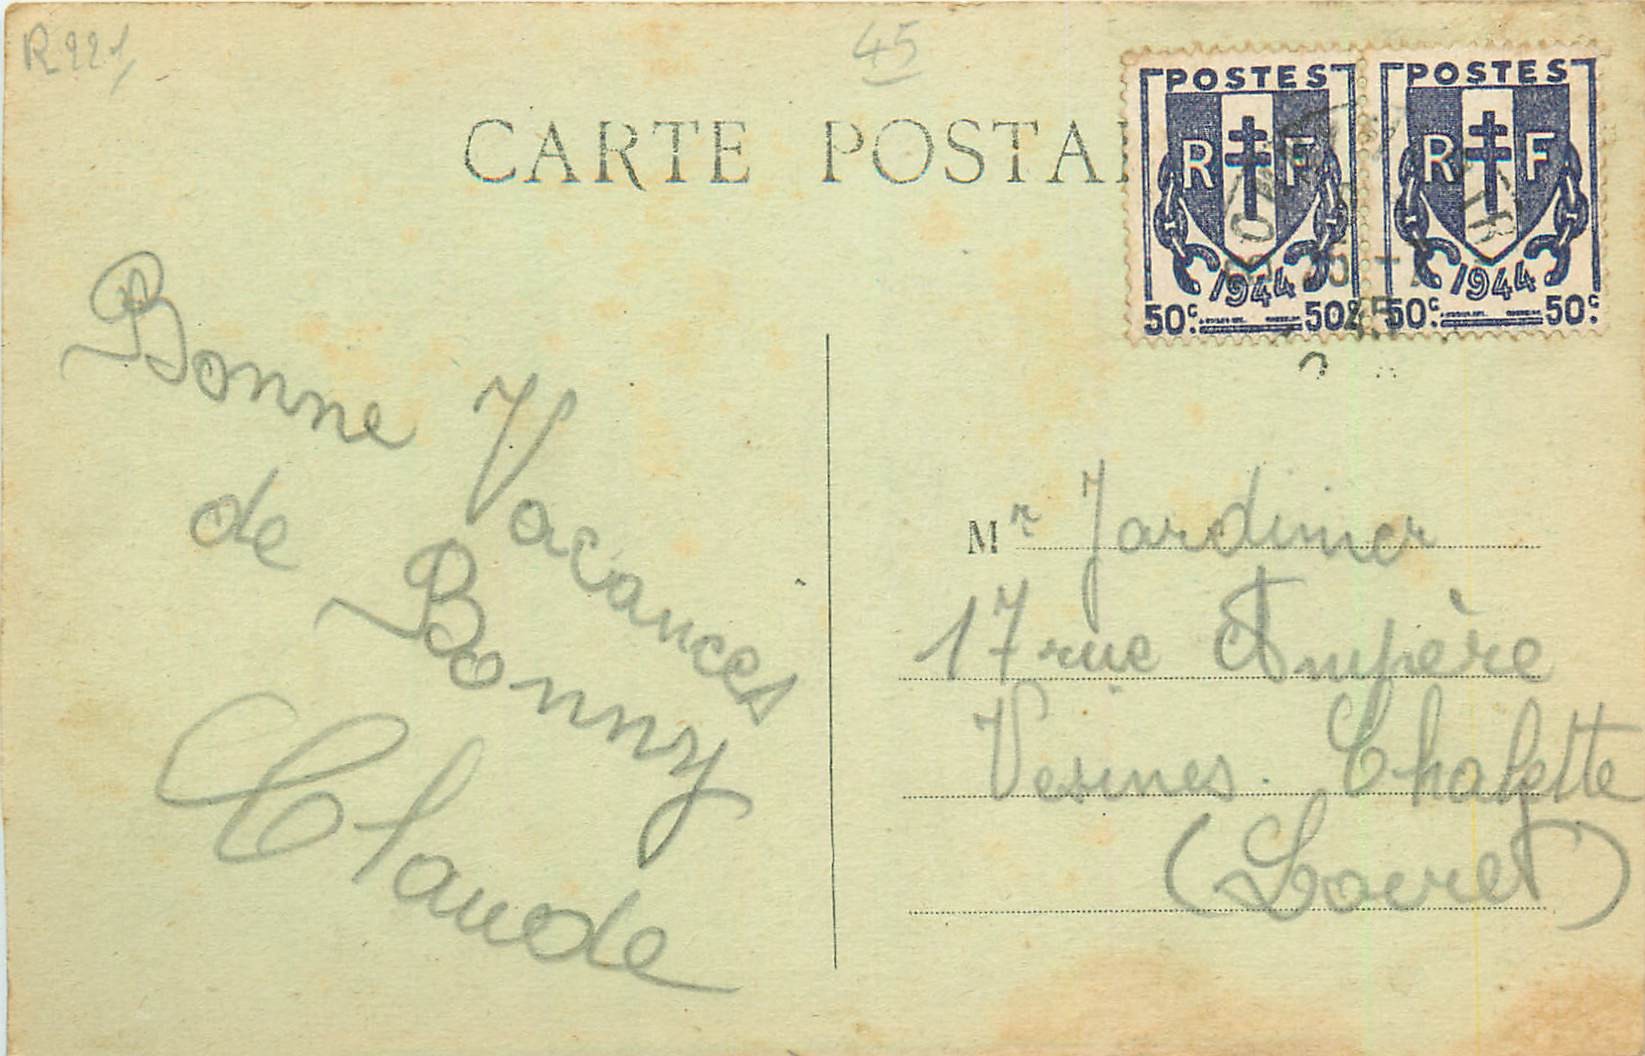 R221
45
CARTE POSTA
POSTES POSTES
R F R F
1944 1944
50c. 50c. 50c. 50c.
Bonne Vacances
de Bonny
Claude
Mr Jardinier
17 rue Ampère
Vesines. Chalette
(Loiret)